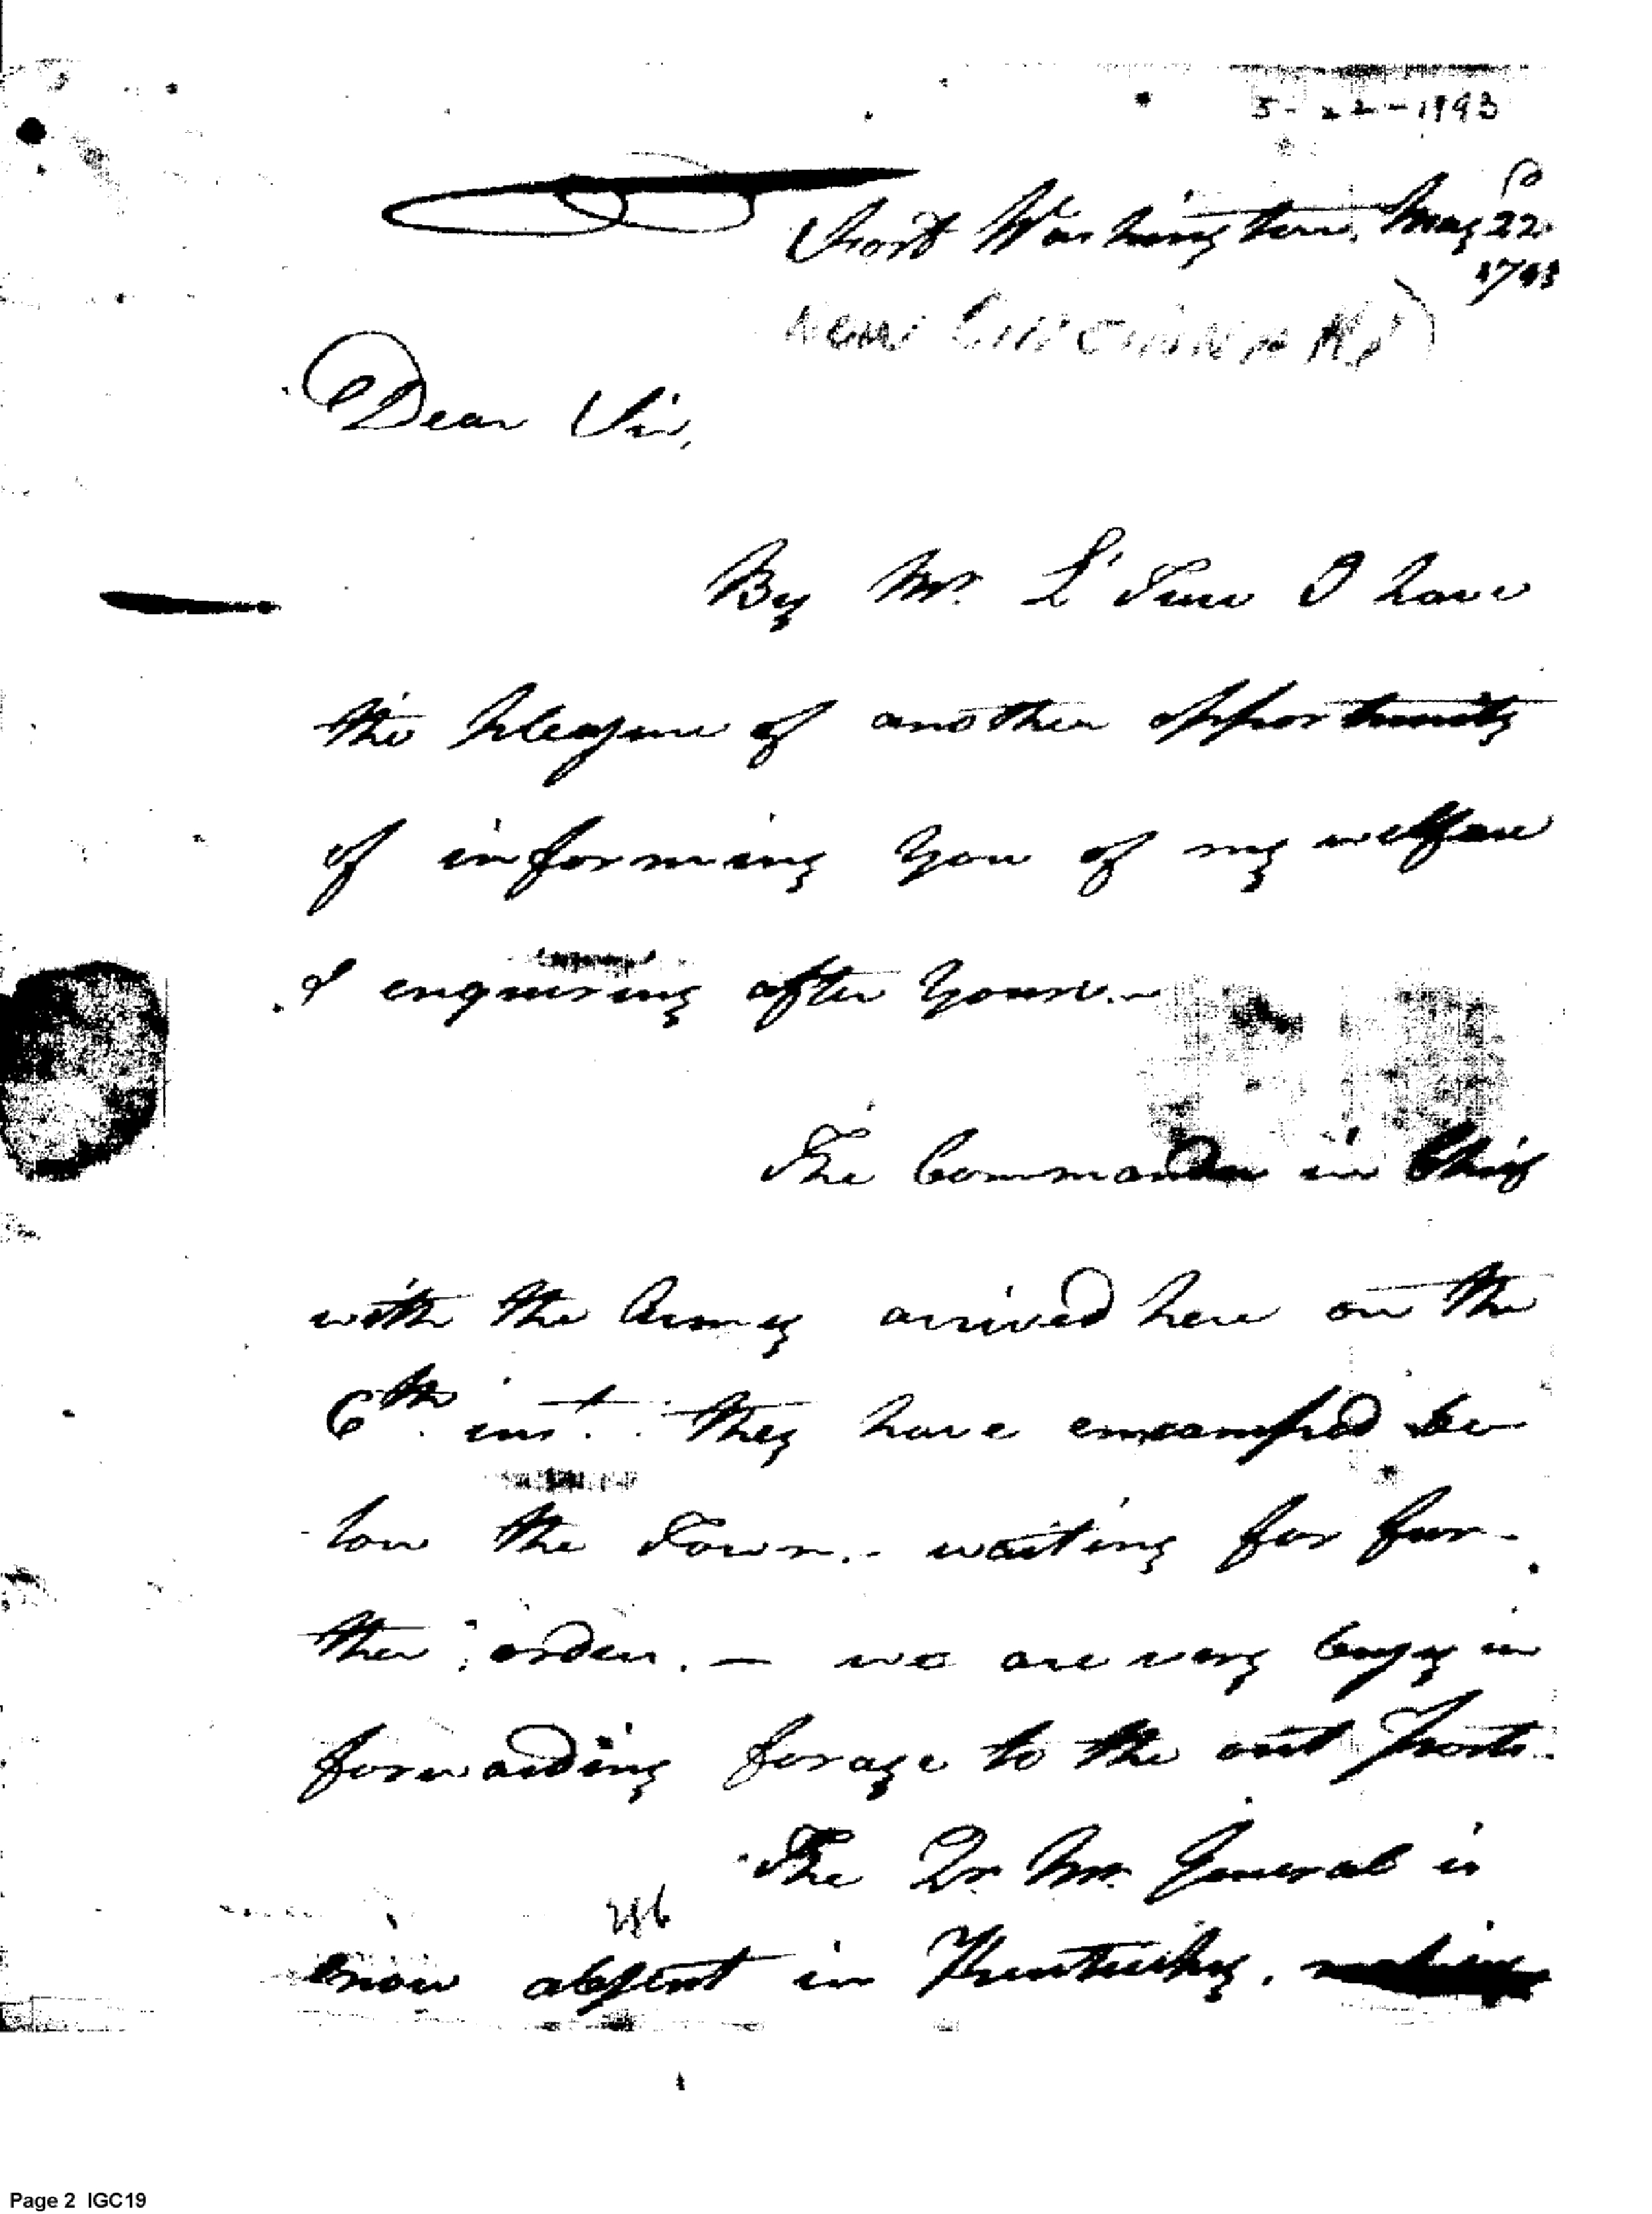 5-22-1793
Fort Washington, May 22
1793
Now Cincinnati)
Dear Sir,
By Mr. L' I have
the pleasure of another opportunity
of informing you of my welfare
& enquiring after yours.—
The Commander in Chief
with the Army arrived here on the
6th. inst. they have encamped be
-low the Town.- waiting for fur-
ther orders. — we are very busy in
forwarding forage to the out posts.
The Qr. Mr. General is
286
know absent in Kentucky, making
Page 2 IGC19